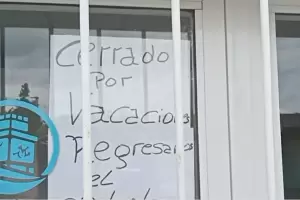 Cerrado
Por
Vacaciones
Regresamos
eL